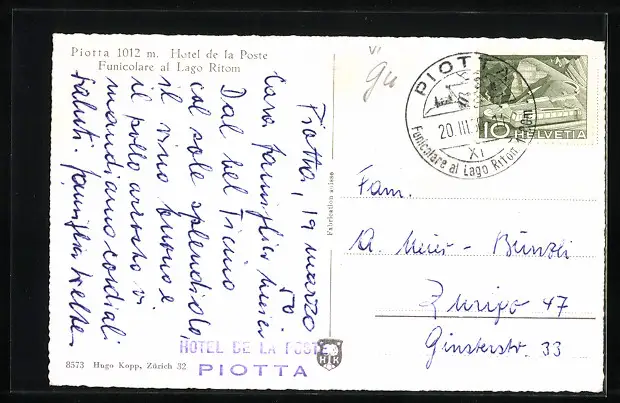 Piotta 1012 m. Hotel de la Poste
Funicolare al Lago Ritom
Piotta, 19 marzo
50.
Cara famiglia Meier
Dal bel Ticino
col sole splendido,
il vino buono e
il pollo arrosto vi
mandiamo cordiali
saluti. famiglia Welter
HOTEL DE LA POSTE
PIOTTA
HK
8573 Hugo Kopp, Zürich 32
Fabrication suisse
VI
PIOTTA
20.III.
XI
Funicolare al Lago Ritom
10 HELVETIA
Fam.
A. Meier - Bünzli
Zurigo 47
Ginsterstr. 33